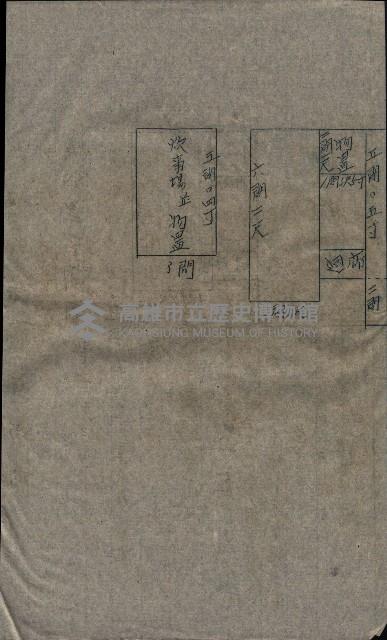 五間〇五寸
二間
物置
二間二尺
廻廊
六間二尺
五間〇四寸
炊事場並物置
3間
高雄市立歷史博物館
KAOHSIUNG MUSEUM OF HISTORY